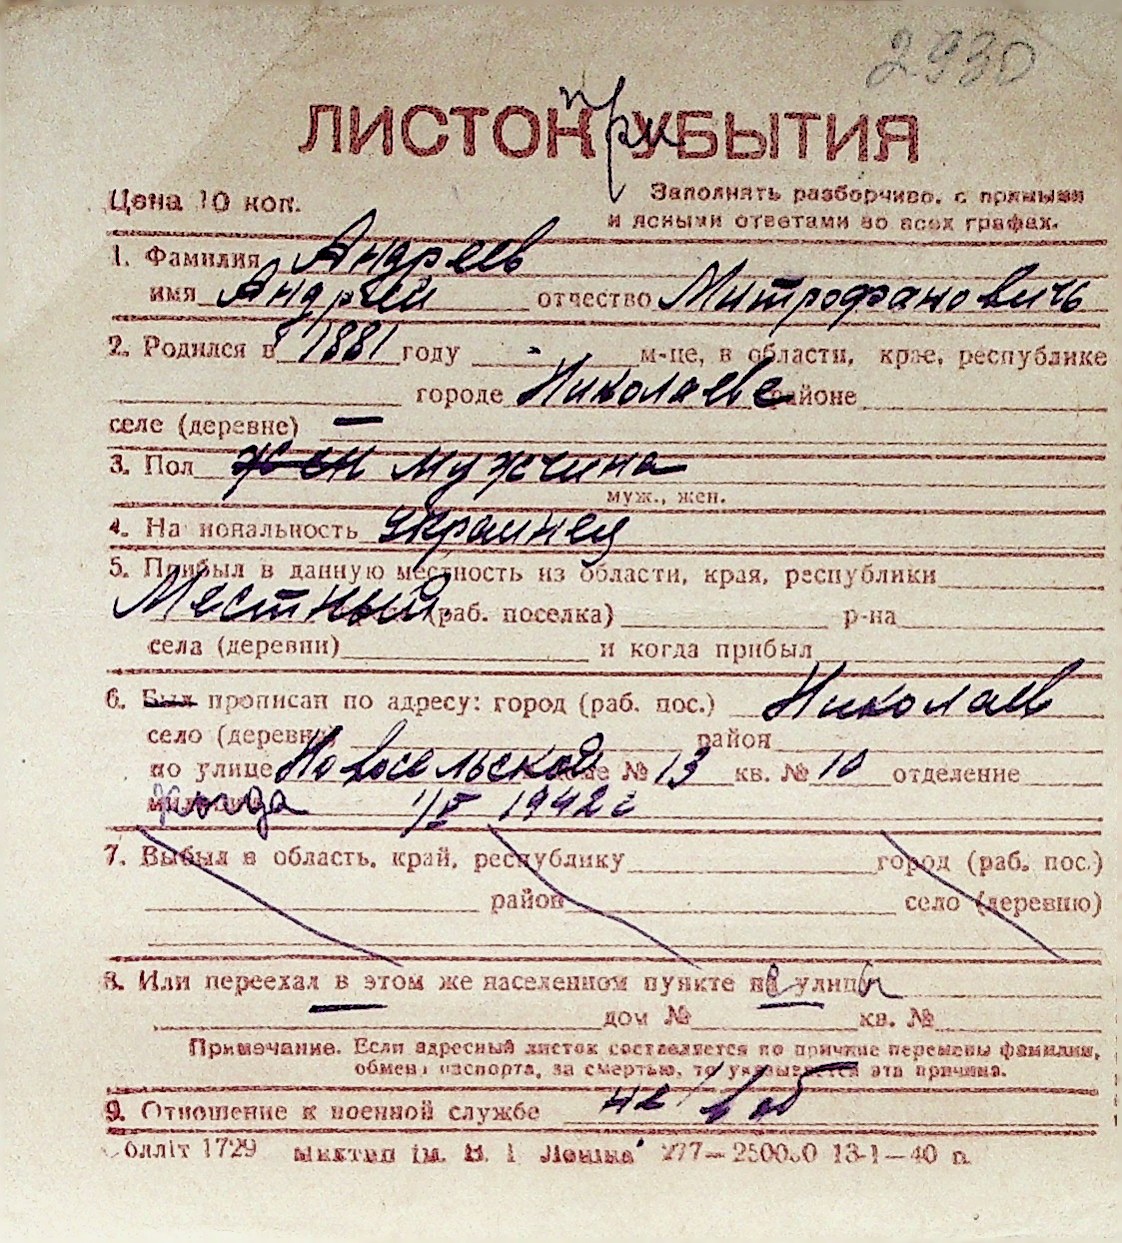 2930
ЛИСТОК при УБЫТИЯ
Цена 10 коп.
Заполнять разборчиво, с прямыми
и ясными ответами во всех графах.
1. Фамилия Андреев
имя Андрей отчество Митрофановичь
2. Родился в 1881 году - м-це, в области, крае, республике
городе Николаеве районе
селе (деревне) —
3. Пол жен мужчина
муж., жен.
4. Национальность украинец
5. Прибыл в данную местность из области, края, республики
Местный (раб. поселка) р-на
села (деревни) и когда прибыл
6. Был прописан по адресу: город (раб. пос.) Николаев
село (деревня) район
по улице Новосельской доме № 13 кв. № 10 отделение
когда 1942 г
7. Выбыл в область, край, республику город (раб. пос.)
район село (деревню)
8. Или переехал в этом же населенном пункте с улицы
дом № кв. №
Примечание. Если адресный листок составляется по причине перемены фамилии,
обмена паспорта, за смертью, то указывается эта причина.
9. Отношение к военной службе не/воб
Облліт 1729 277—250000 13-1—40 п.